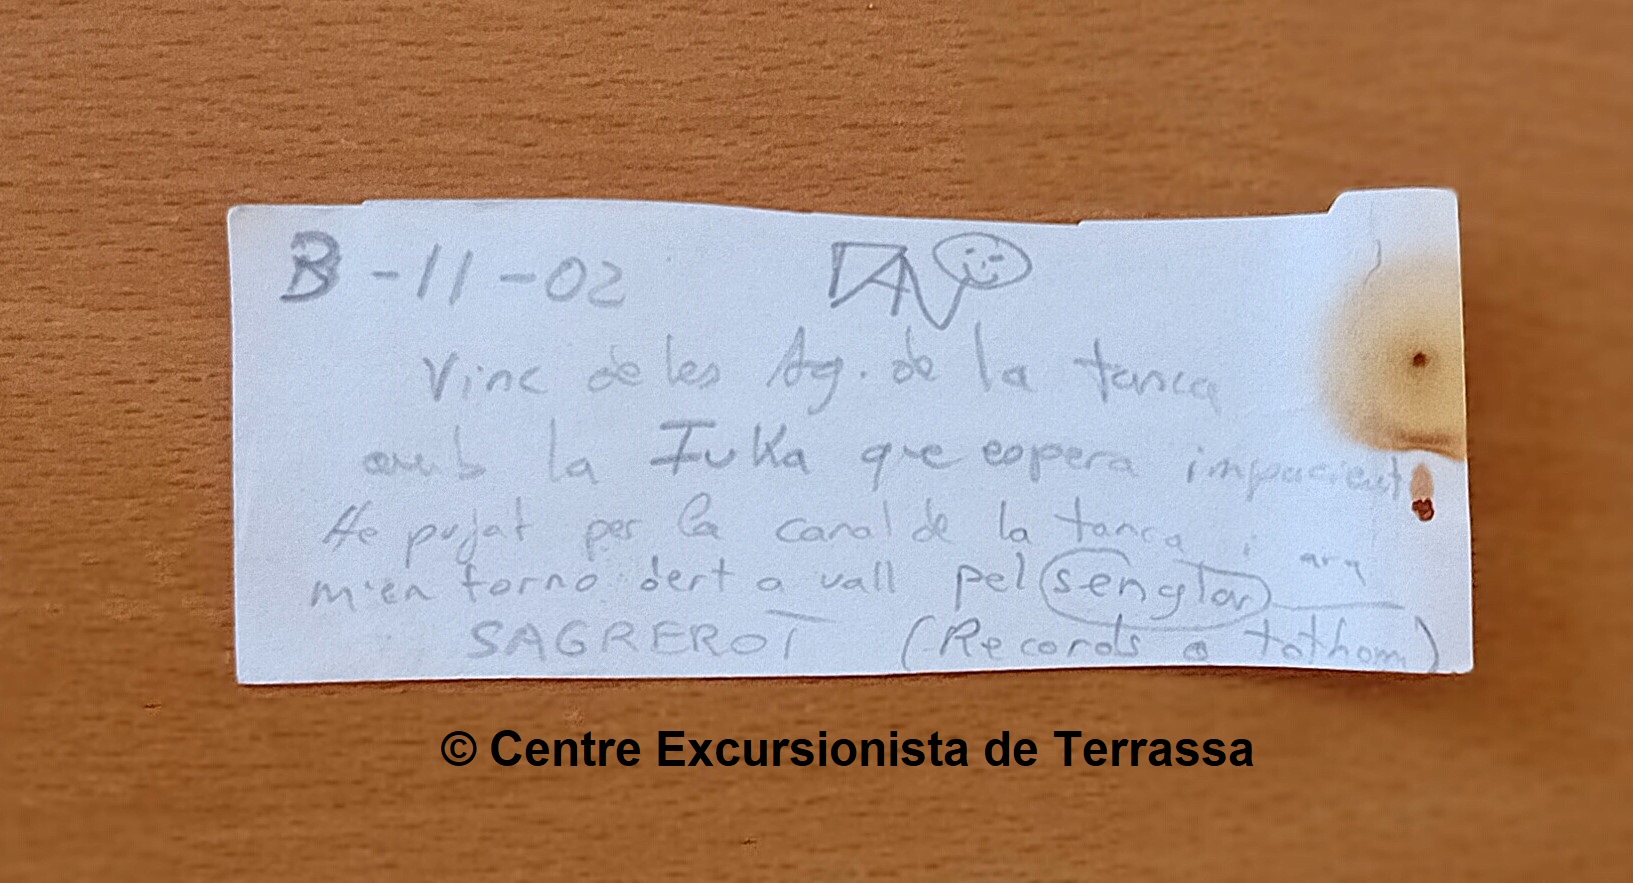 -11-02
Vinc de les Ag. de la tanca
amb la que espera impacient
He pujat per la canal de la tanca i ara
m'en torno dert a vall pel senglar
SAGREROT (Records a tothom)
© Centre Excursionista de Terrassa